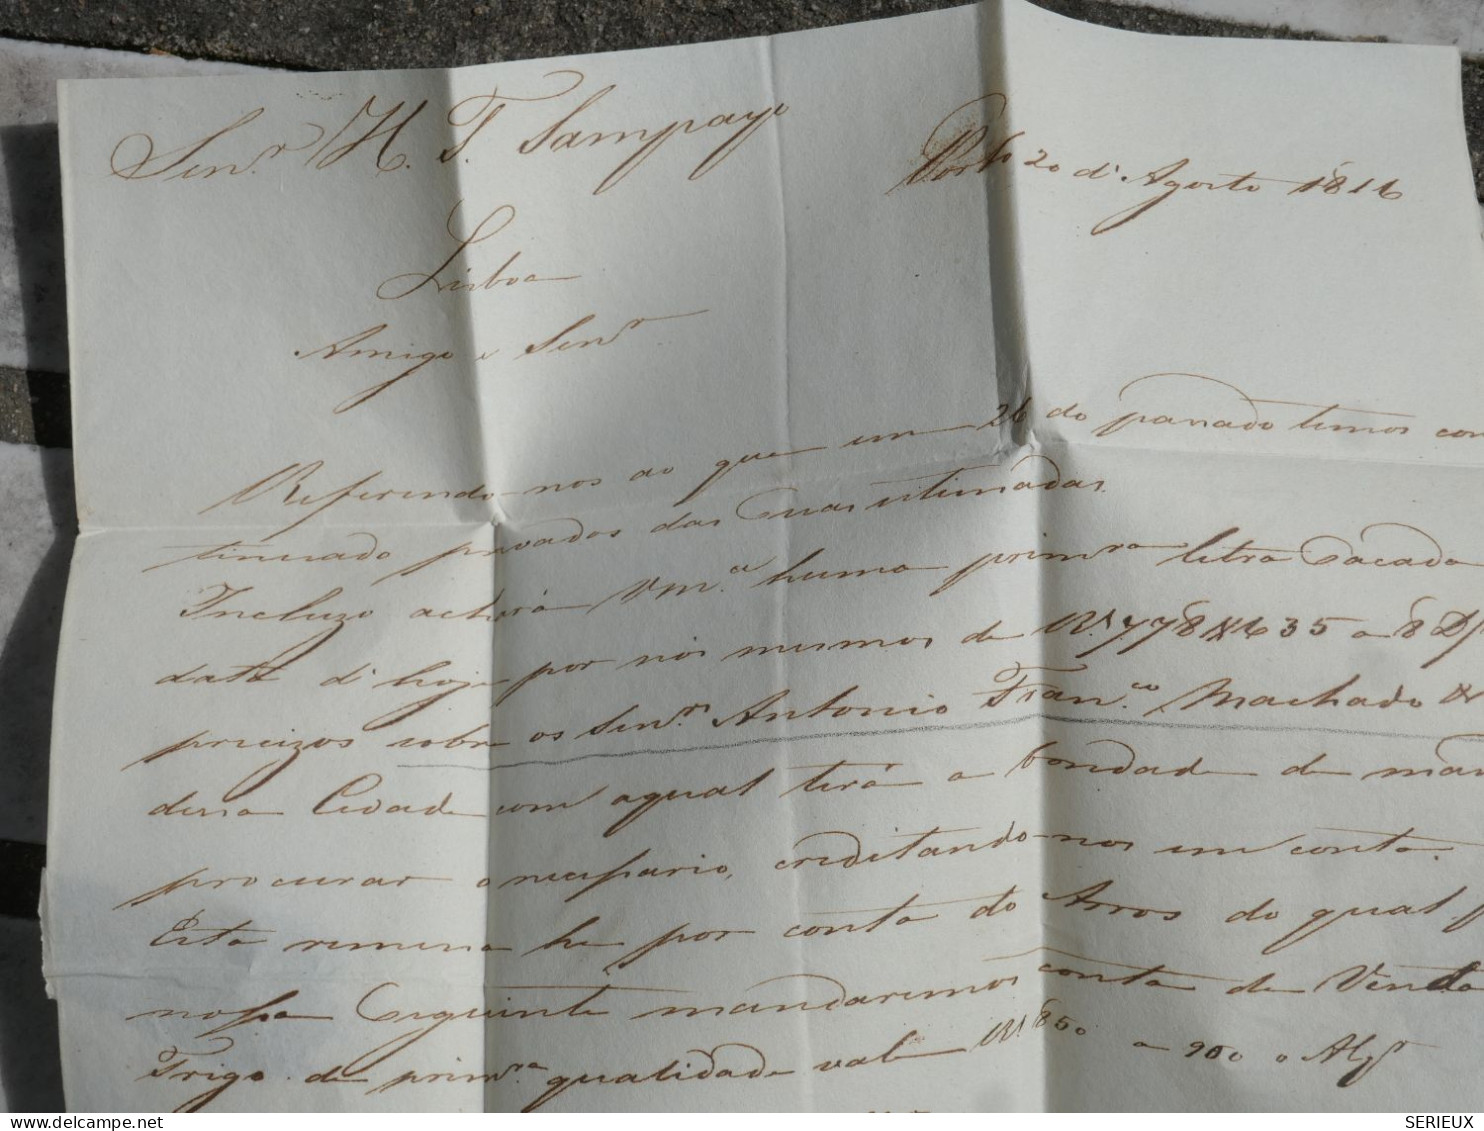 Senr. H. T. Sampayo
Porto 20 d'Agosto 1816
Lisboa
Amigo e Senr
Referindo-nos ao que em 26 do passado temos con
tinuado privados das Suas estimadas.
Incluzo achará Vm.ce huma primra letra Sacada
data d'hoje por nos mesmos de Rs. 778$635 a 8 D/
precizos sobre os Senrs Antonio Fran.co Machado &
dessa Cidade com aqual terá a bondade de man
procurar o nessesario, creditando-nos em conta.
Esta remessa he por conta do Arros do qual p
nossa Seguinte mandaremos conta de Venda
Trigo de primra qualidade vale Rs 850 a 900 o Alqr
SERIEUX